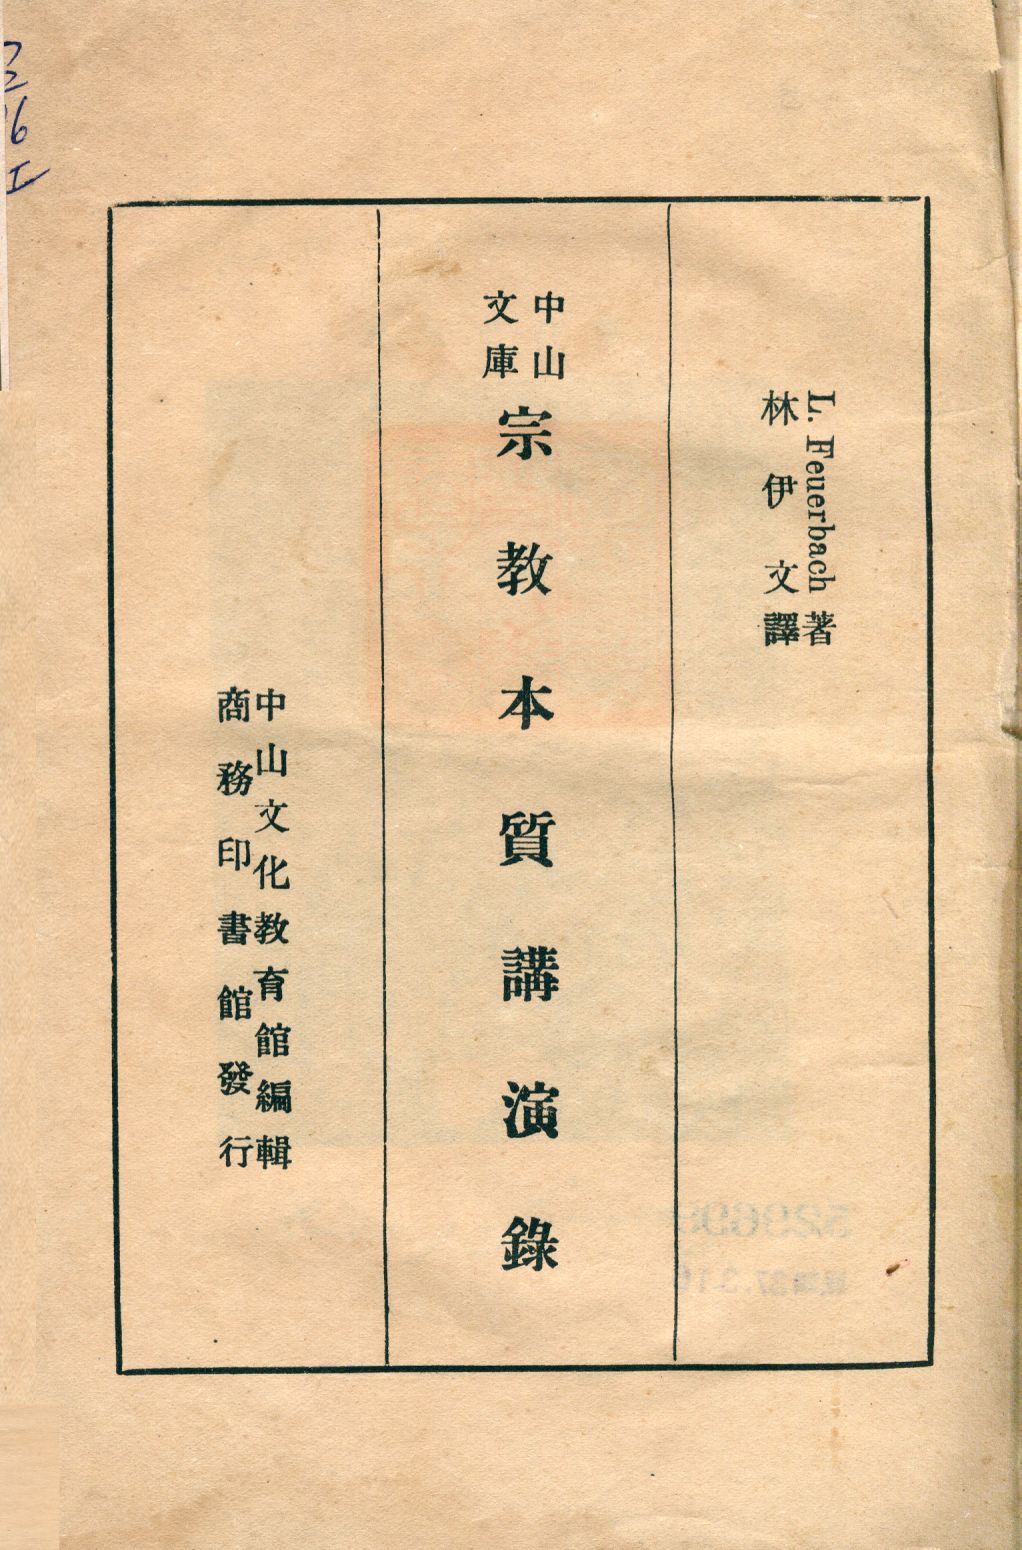 L. Feuerbach 著
林伊文譯
中山
文庫
宗教本質講演錄
中山文化教育館編輯
商務印書館發行